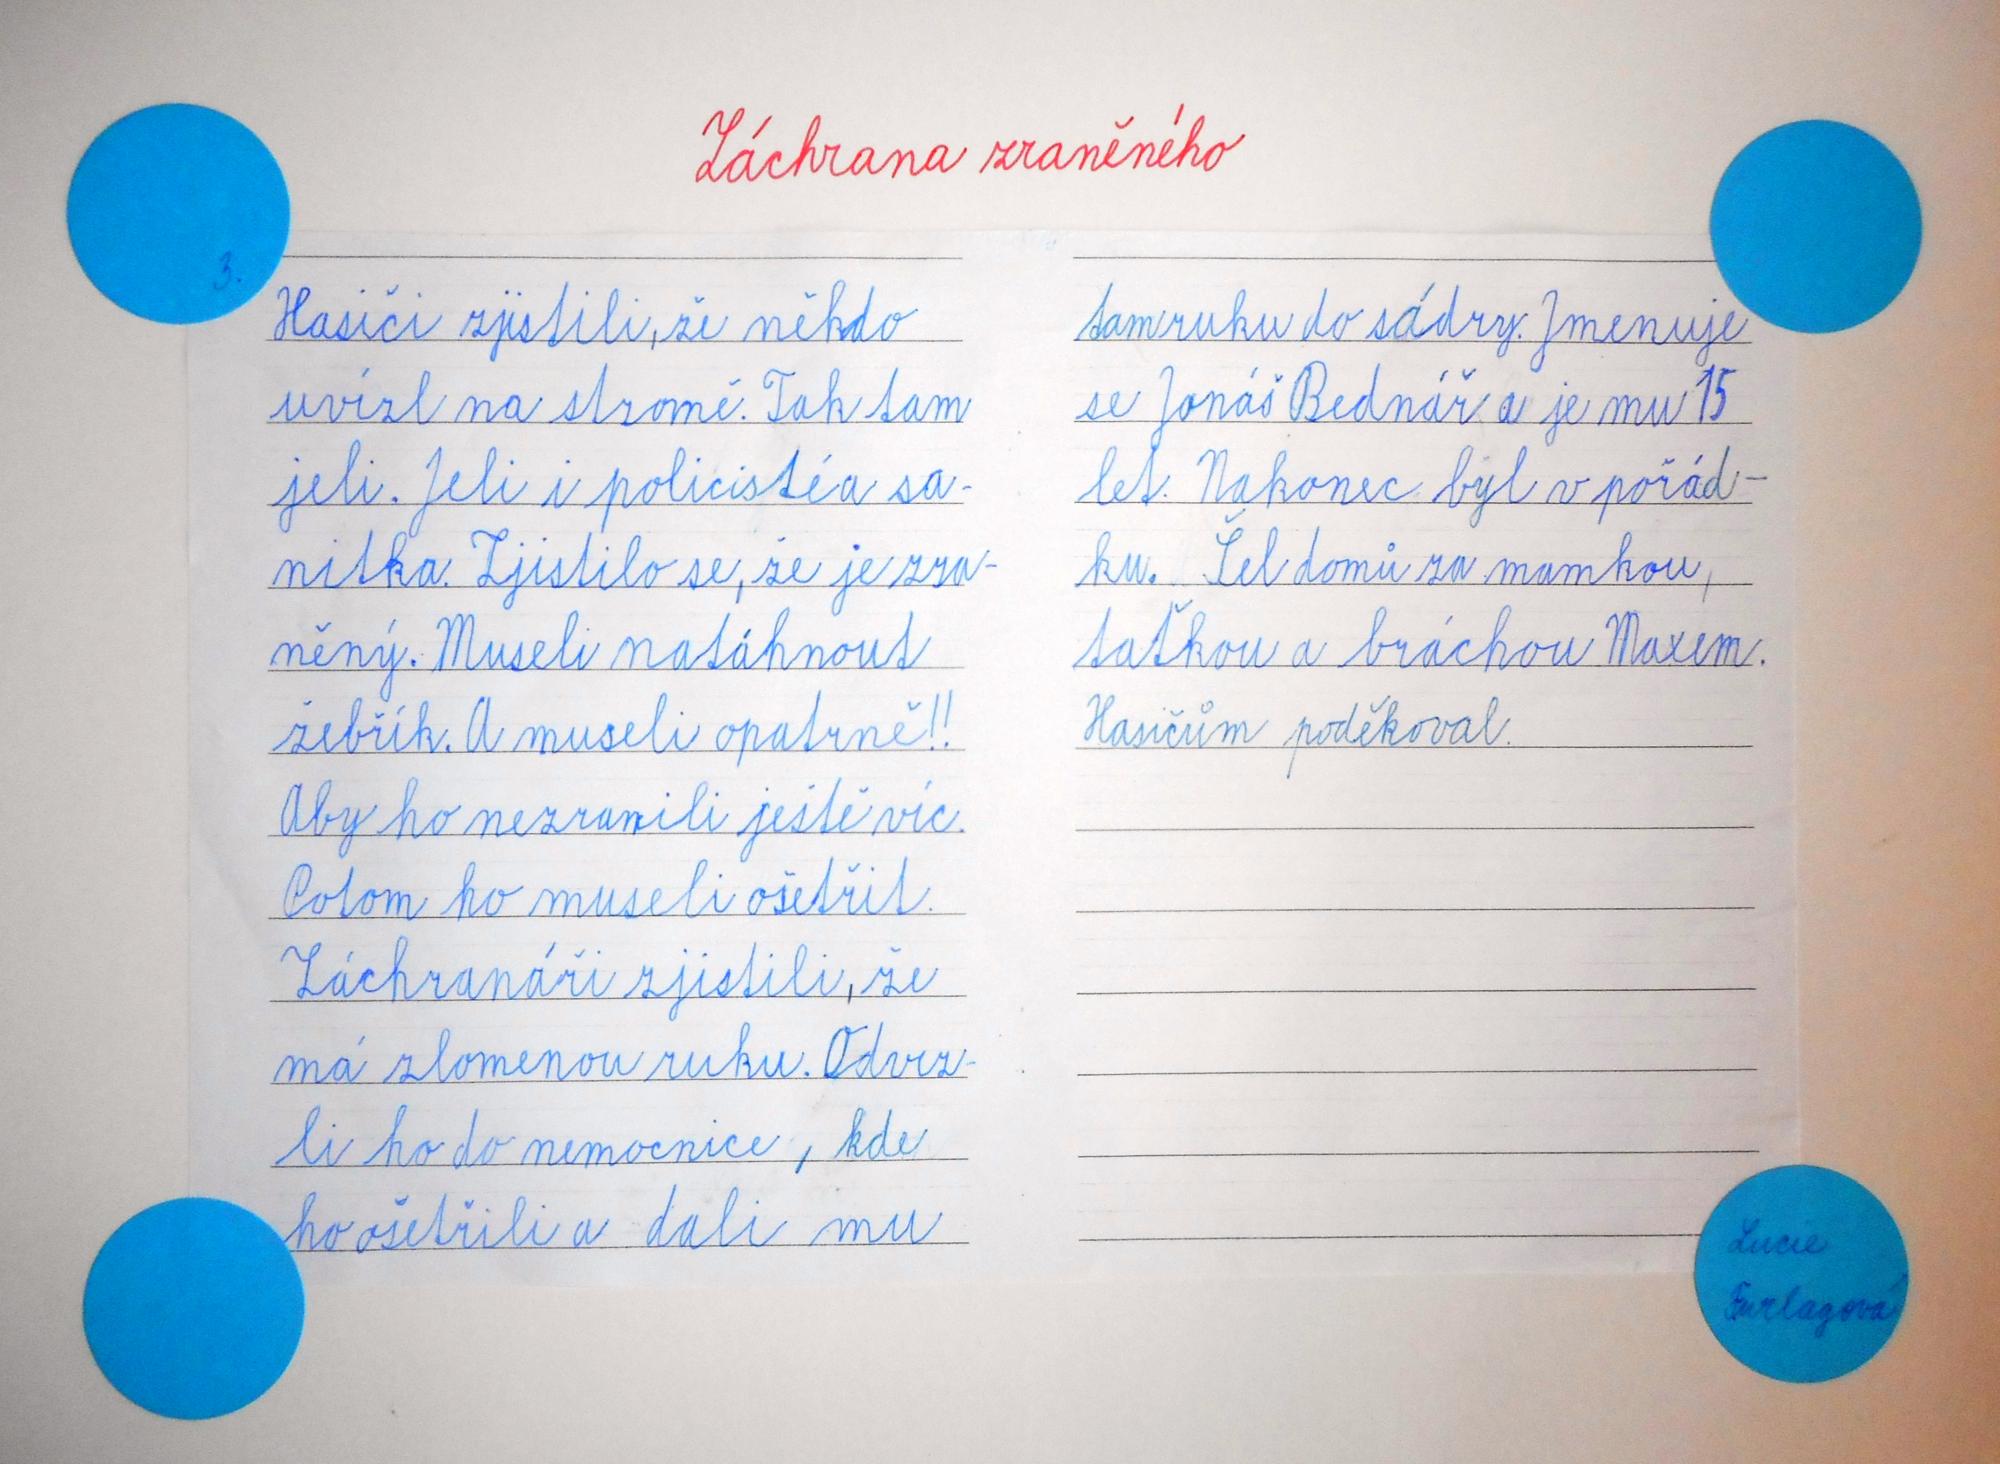 Záchrana zraněného
3.
Hasiči zjistili, že někdo
uvízl na stromě. Tak tam
jeli. Jeli i policisté a sa-
nitka. Zjistilo se, že je zra-
něný. Museli natáhnout
žebřík. A museli opatrně!!
Aby ho nezranili ještě víc.
Potom ho museli ošetřit.
Záchranáři zjistili, že
má zlomenou ruku. Odvez-
li ho do nemocnice, kde
ho ošetřili a dali mu
tam ruku do sádry. Jmenuje
se Jonáš Bednář a je mu 15
let. Nakonec byl v pořád-
ku. Šel domů za mamkou,
taťkou a bráchou Maxem.
Hasičům poděkoval.
Lucie
Furlagová